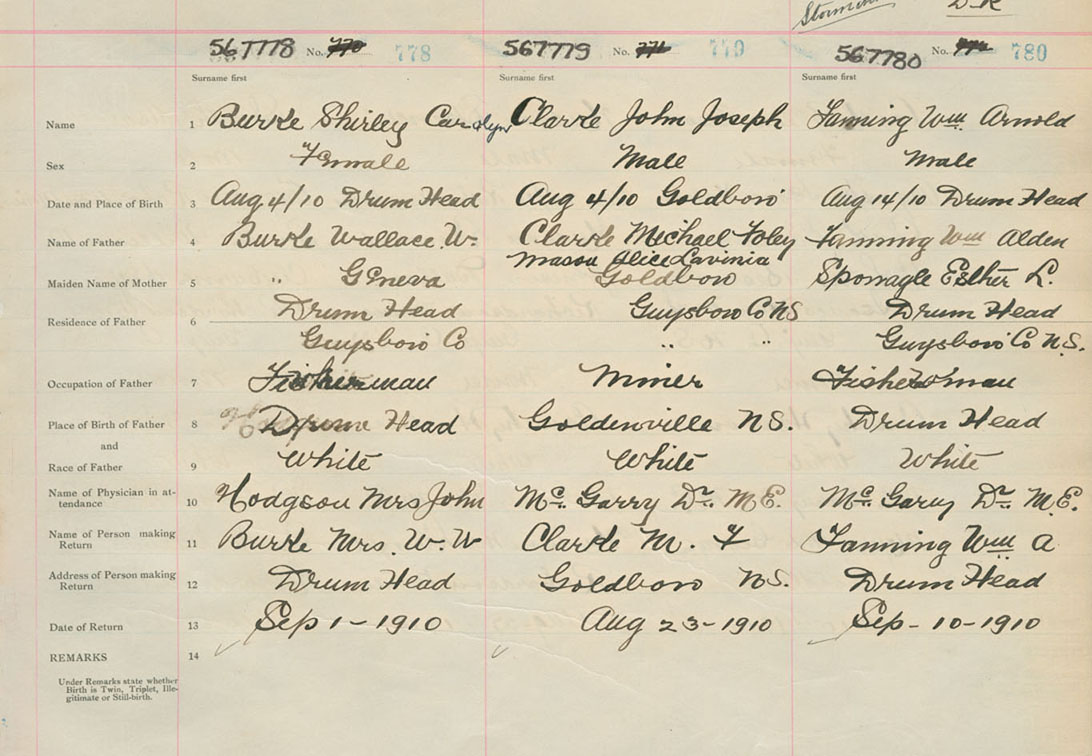 D-R
567778 No. 770 778 567779 No. 771 779 567780 No. 780
Surname first Surname first Surname first
Name 1 Burke Shirley Carolyn Clarke John Joseph Fanning Wm Arnold
Sex 2 Female Male Male
Date and Place of Birth 3 Aug 4/10 Drum Head Aug 4/10 Goldboro Aug 14/10 Drum Head
Name of Father 4 Burke Wallace W. Clarke Michael Foley Fanning Wm Alden
Mason Alice Lavinia
Maiden Name of Mother 5 " Geneva Goldboro Sponagle Esther L.
Residence of Father 6 Drum Head Guysboro Co NS Drum Head
Guysboro Co " " Guysboro Co N.S.
Occupation of Father 7 Fisherman Miner Fisherman
Place of Birth of Father 8 Drum Head Goldenville NS. Drum Head
and
Race of Father 9 White White White
Name of Physician in at-
tendance 10 Hodgson Mrs John Mc. Garry Dr. M.E. Mc. Gary Dr. M.E.
Name of Person making
Return 11 Burke Mrs. W. W Clarke M. F Fanning Wm A
Address of Person making
Return 12 Drum Head Goldboro NS. Drum Head
Date of Return 13 Sep 1-1910 Aug 23-1910 Sep-10-1910
REMARKS 14
Under Remarks state whether
Birth is Twin, Triplet, Ille-
gitimate or Still-birth.